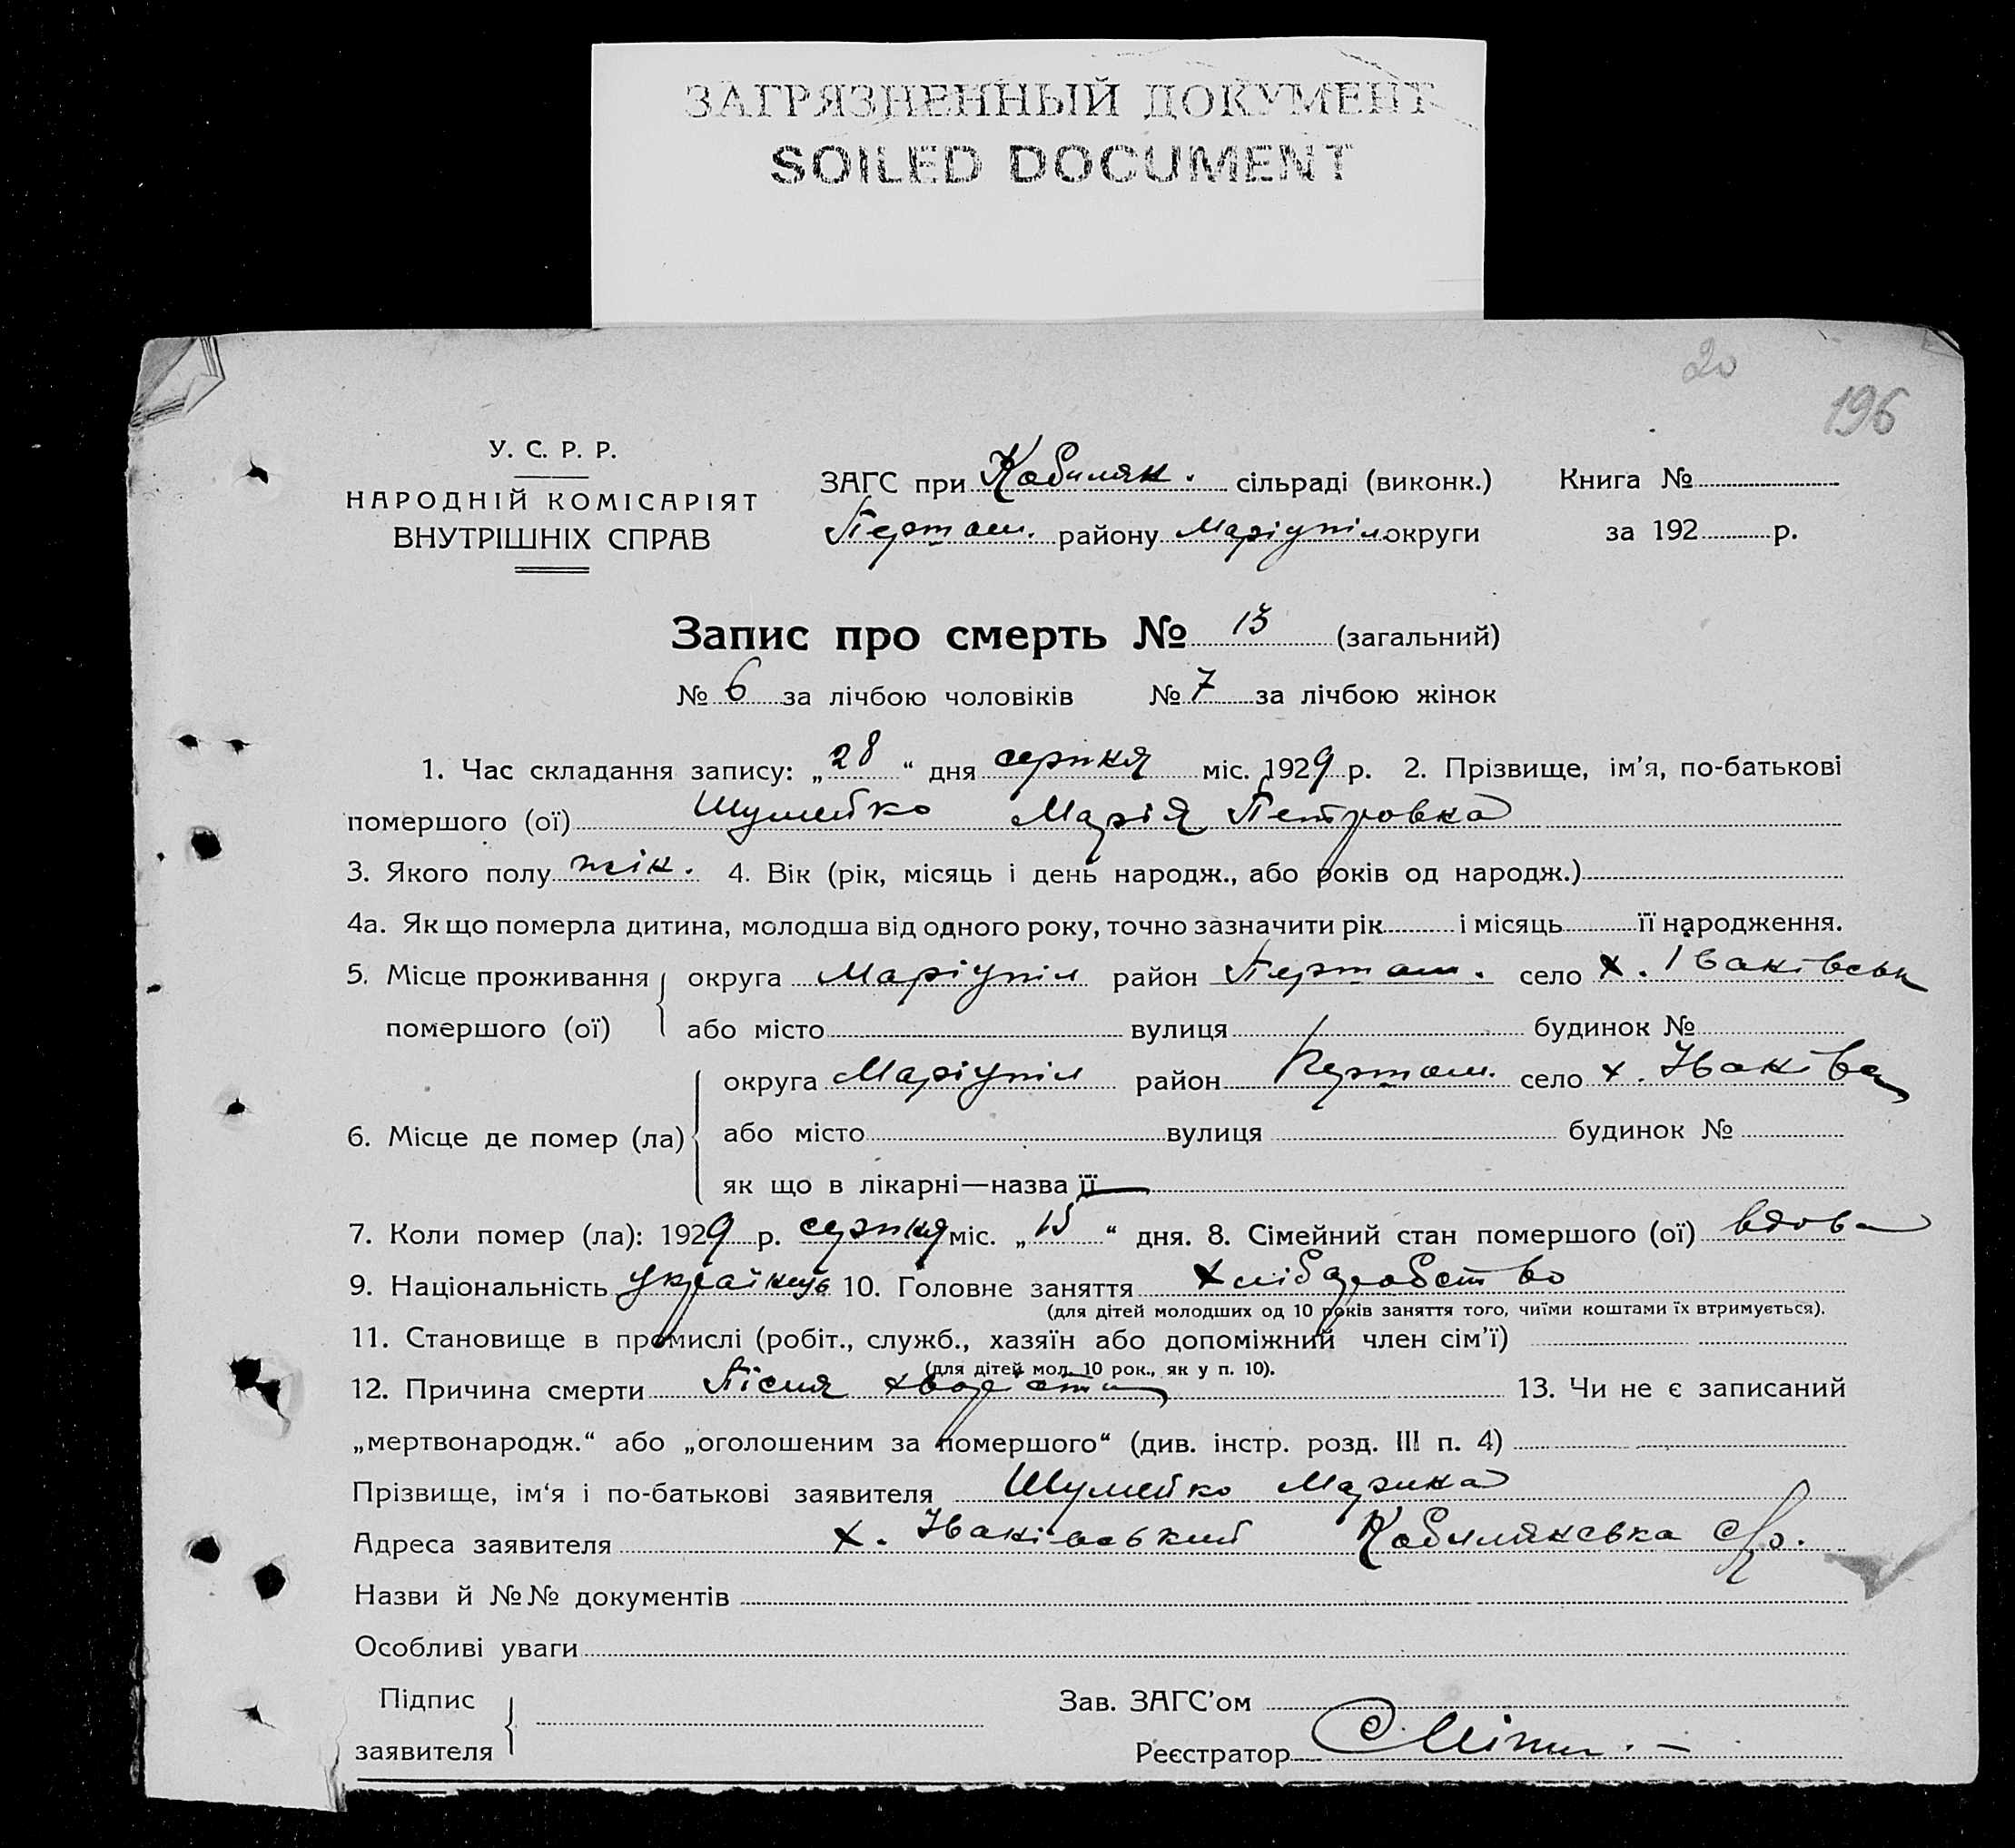 ЗАГРЯЗНЕННЫЙ ДОКУМЕНТ
SOILED DOCUMENT
20
196
У. С. Р. Р.
НАРОДНІЙ КОМІСАРІЯТ
ВНУТРІШНІХ СПРАВ
ЗАГС при Кобиляк. сільраді (виконк.) Книга №
району Маріупіл. округи за 192 р.
Запис про смерть № 13 (загальний)
№ 6 за лічбою чоловіків № 7 за лічбою жінок
1. Час складання запису: „28“ дня серпня міс. 1929 р. 2. Прізвище, ім'я, по-батькові
помершого (ої) Шумейко Марія Петровна
3. Якого полу жін. 4. Вік (рік, місяць і день народж., або років од народж.)
4а. Як що померла дитина, молодша від одного року, точно зазначити рік і місяць її народження.
5. Місце проживання округа Маріупіл район село х.
помершого (ої) або місто вулиця будинок №
округа Маріупіл район село х.
6. Місце де помер (ла) або місто вулиця будинок №
як що в лікарні—назва її
7. Коли помер (ла): 1929 р. серпня міс. „15“ дня. 8. Сімейний стан помершого (ої) вдова
9. Національність 10. Головне заняття хліборобство
(для дітей молодших од 10 років заняття того, чиїми коштами їх втримується).
11. Становище в промислі (робіт., служб., хазяїн або допоміжний член сім'ї)
(для дітей мол. 10 рок., як у п. 10).
12. Причина смерти Після 13. Чи не є записаний
„мертвонародж.“ або „оголошеним за помершого“ (див. інстр. розд. III п. 4)
Прізвище, ім'я і по-батькові заявителя Шумейко
Адреса заявителя х. Кобиляквська с/р.
Назви й №№ документів
Особливі уваги
Підпис
заявителя
Зав. ЗАГС'ом
Реєстратор